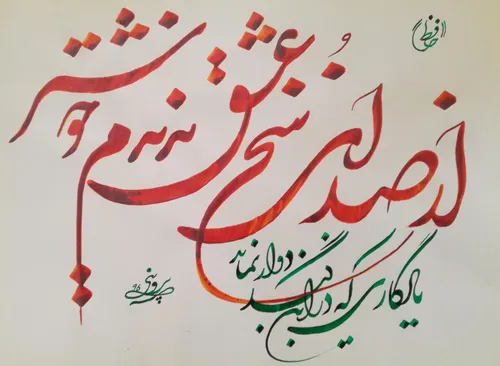 «حافظ»
از صدای سخن عشق ندیدم خوشتر
یادگاری که در این گنبد دوار بماند